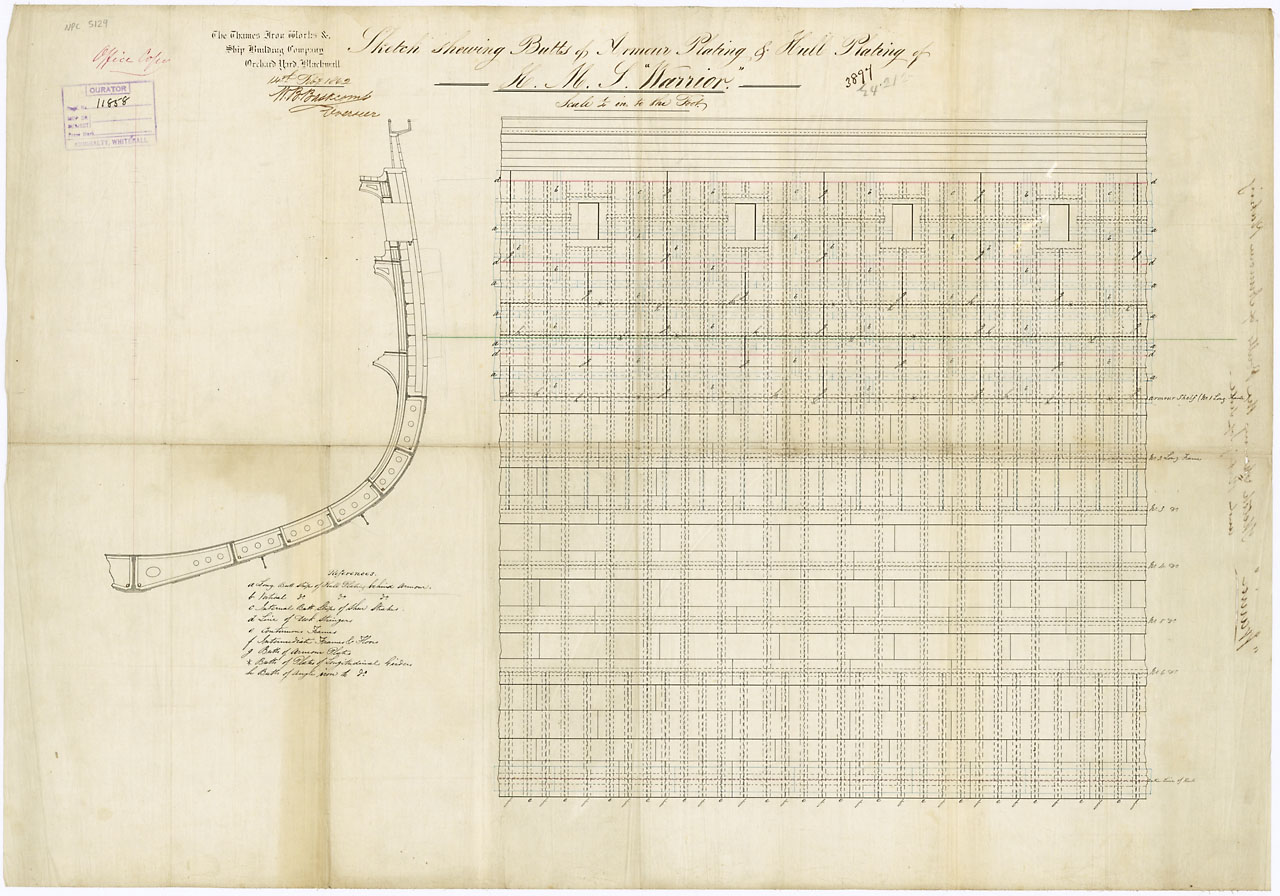 NPC 5129
Office Copy
CURATOR
11858
ADMIRALTY, WHITEHALL
The Thames Iron Works &
Ship Building Company
Orchard Yard, Blackwall
14th Nov 1862
Overseer
Sketch shewing Butts of Armour Plating & Hull Plating of
H. M. S. "Warrior."
Scale ½ in. to the Foot
3897
Armour Shelf (No 1 Long Frame)
No 2 Long Frame
No 3 Do
No 4 Do
No 5 Do
No 6 Do
References.
a Long Butt Strips of Hull Plating behind Armour.
b Vertical Do Do Do
c Internal Butt Strips of Shear Strakes.
d Line of Deck Stringers
e Continuous Frames
f Intermediate Frames & Floors
g Butts of Armour Plates
k Butts of Plates of Longitudinal Girders
h Butts of Angle iron to Do
"Warrior"